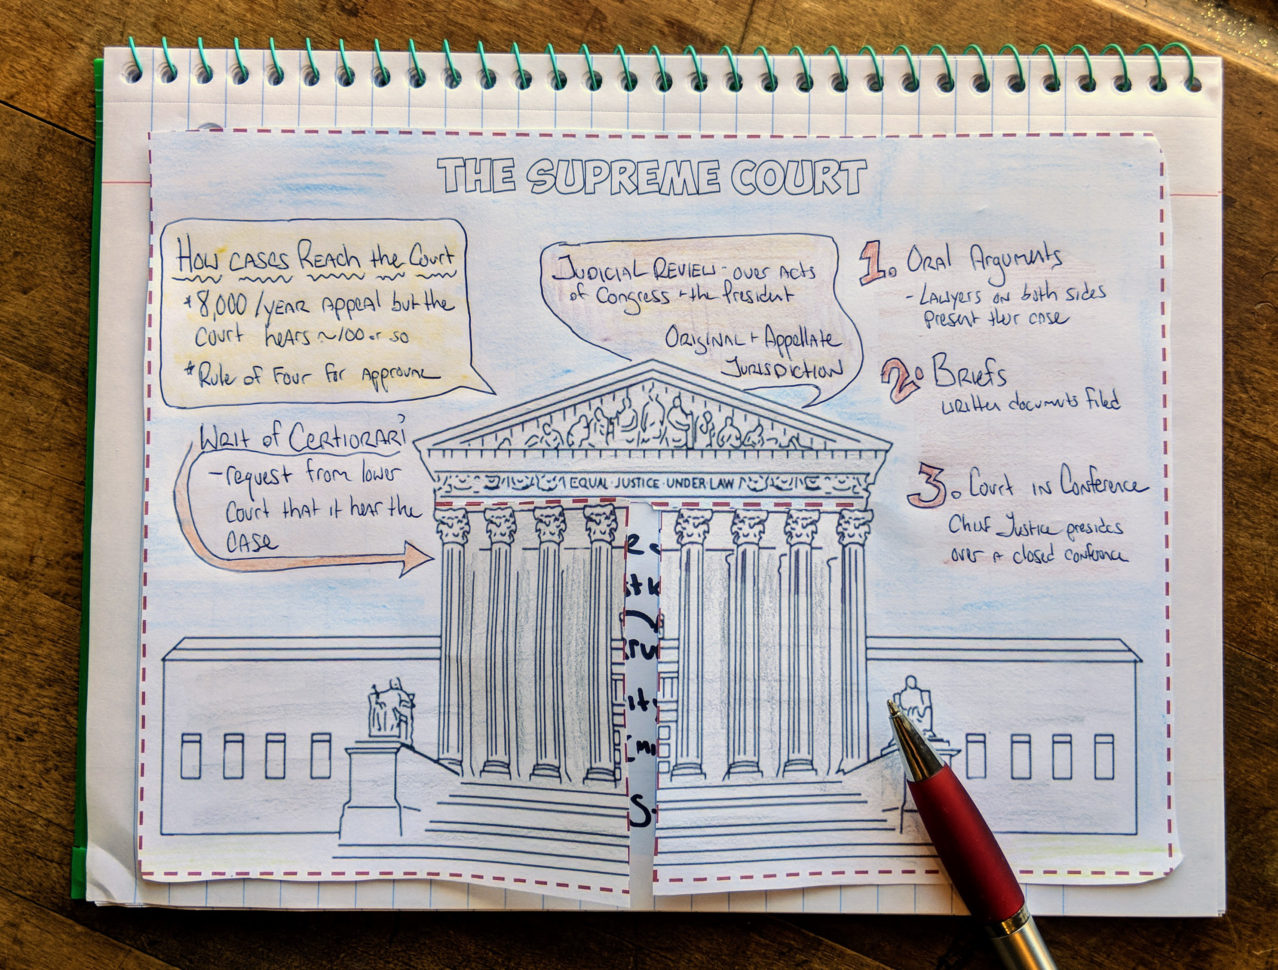 THE SUPREME COURT
How cases Reach the Court
*8,000/year Appeal but the
Court hears ~100 or so
*Rule of Four for Approval
Writ of Certiorari
-request from lower
Court that it hear the
CASE
JUDICIAL REVIEW - over Acts
of Congress + the President
Original + Appellate
JURISDICTION
1. Oral Arguments
-Lawyers on both sides
Present their case
2. Briefs
written documents filed
3. Court in Conference
Chief Justice presides
over a closed conference
EQUAL·JUSTICE·UNDER·LAW